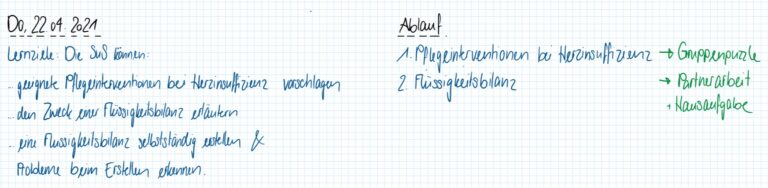 Do, 22.04.2021
Lernziele: Die SuS können:
... geeignete Pflegeinterventionen bei Herzinsuffizienz vorschlagen
... den Zweck einer Flüssigkeitsbilanz erläutern
... eine Flüssigkeitsbilanz selbstständig erstellen &
Probleme beim Erstellen erkennen.
Ablauf:
1. Pflegeinterventionen bei Herzinsuffizienz → Gruppenpuzzle
2. Flüssigkeitsbilanz → Partnerarbeit
+ Hausaufgabe